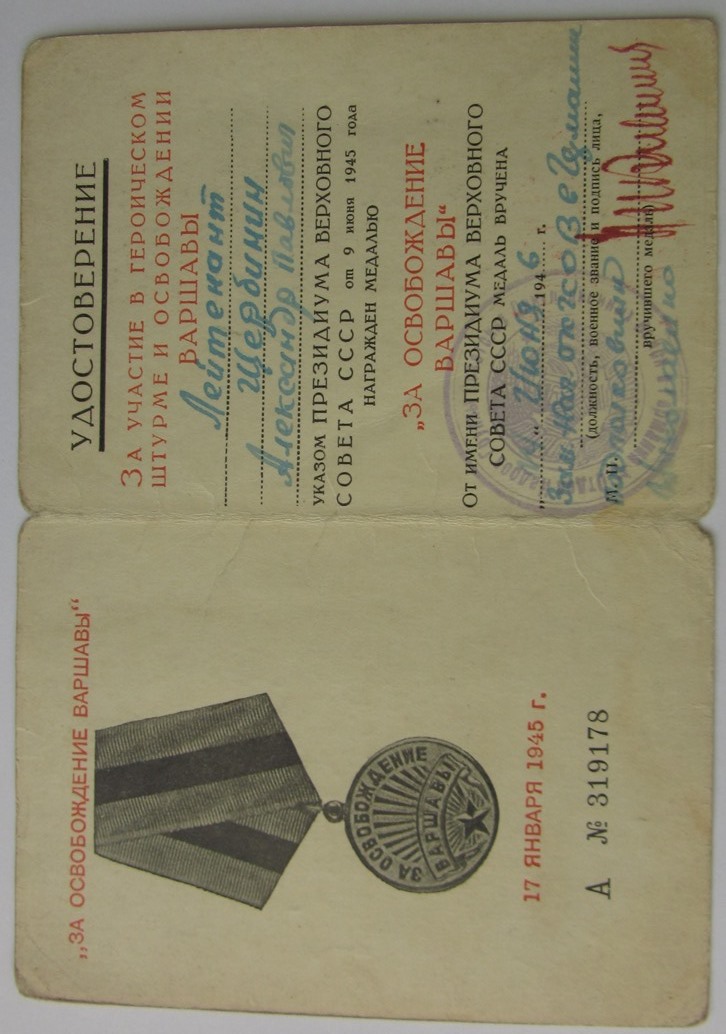 „ЗА ОСВОБОЖДЕНИЕ ВАРШАВЫ“
ЗА ОСВОБОЖДЕНИЕ
ВАРШАВЫ
17 ЯНВАРЯ 1945 г.
А № 319178
УДОСТОВЕРЕНИЕ
ЗА УЧАСТИЕ В ГЕРОИЧЕСКОМ
ШТУРМЕ И ОСВОБОЖДЕНИИ
ВАРШАВЫ
Лейтенант
Щербинин
Александр Павлович
УКАЗОМ ПРЕЗИДИУМА ВЕРХОВНОГО
СОВЕТА СССР от 9 июня 1945 года
НАГРАЖДЕН МЕДАЛЬЮ
„ЗА ОСВОБОЖДЕНИЕ
ВАРШАВЫ“
ОТ ИМЕНИ ПРЕЗИДИУМА ВЕРХОВНОГО
СОВЕТА СССР МЕДАЛЬ ВРУЧЕНА
„ “ Июня 1946 г.
Зам. в Германии
(должность, военное звание и подпись лица,
М. П.
вручившего медаль)